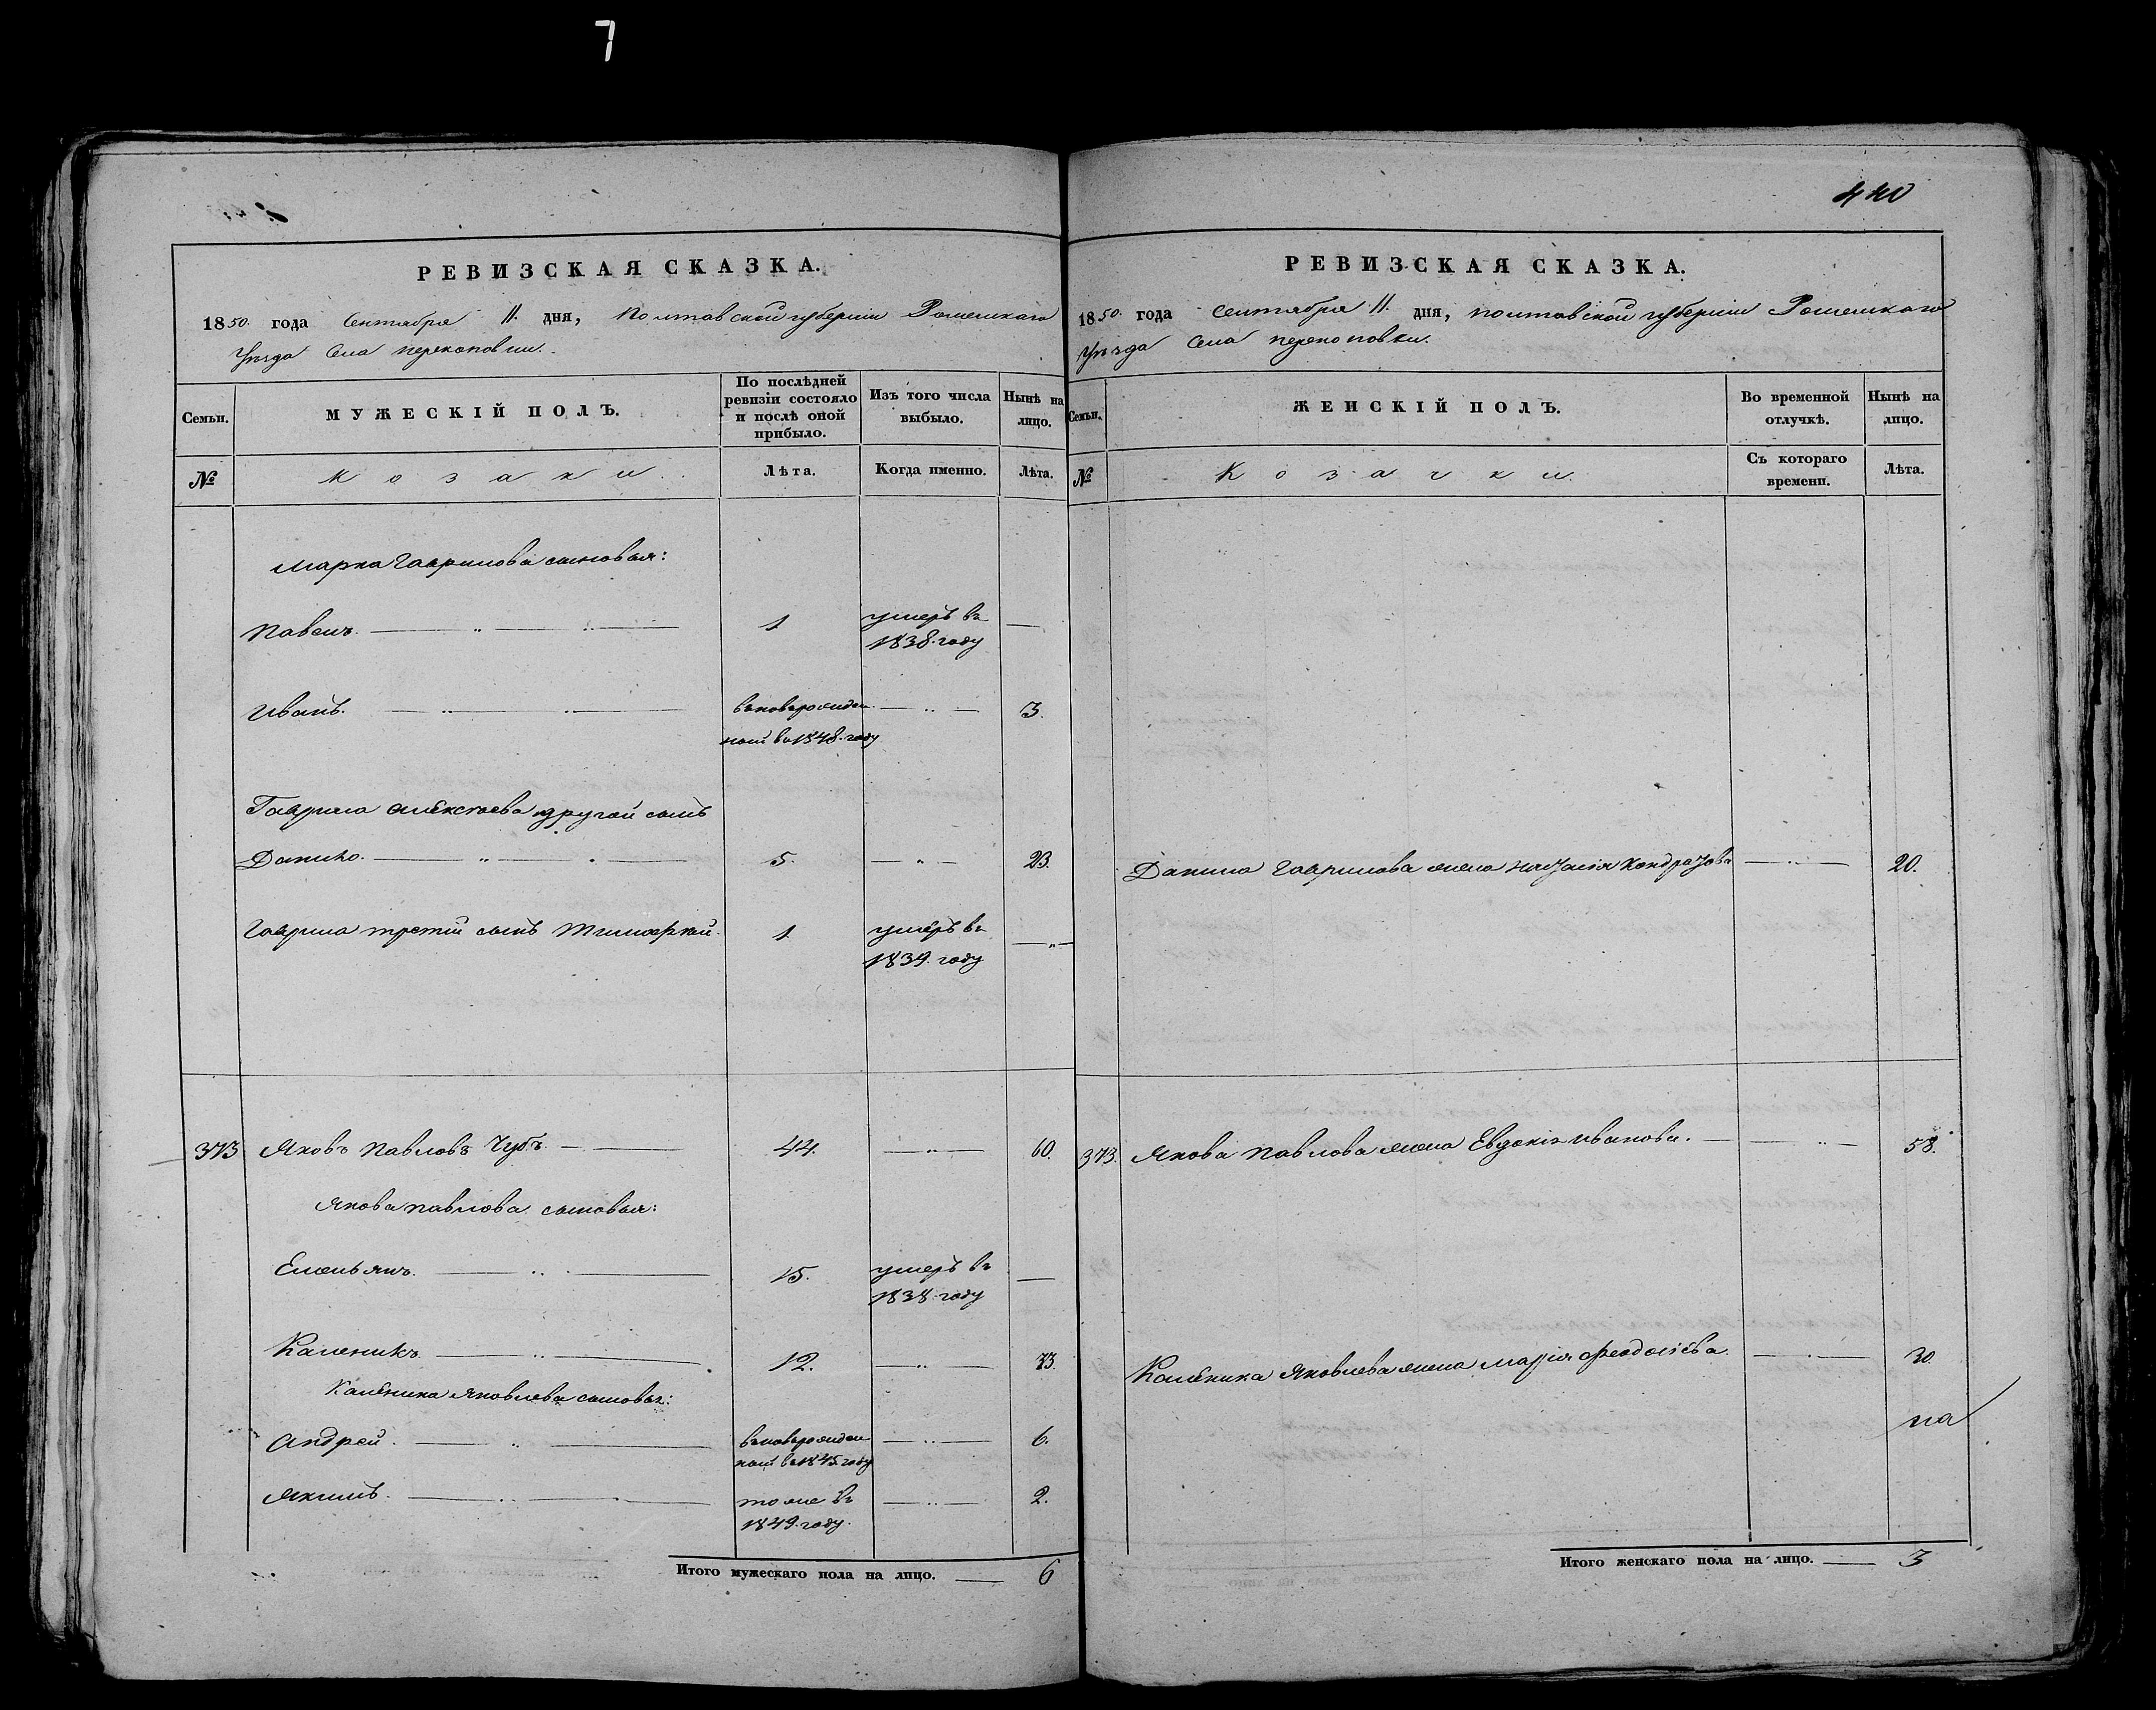 7
440
РЕВИЗСКАЯ СКАЗКА.
1850. года Сентября 11. дня, Полтавской губернии Роменскаго
Уѣзда Села Перекоповки.
Семьи. МУЖЕСКІЙ ПОЛЪ. По послѣдней ревизіи состояло и послѣ оной прибыло. Изъ того числа выбыло. Нынѣ на лицо.
№ Козаки. Лѣта. Когда именно. Лѣта.
Марка Гаврилова сыновья:
Павелъ. 1 умеръ въ —
1838. году
Иванъ. вновьрожден 3.
ной въ 1848. году
Гаврила Алексѣева другой сынъ
Данило. 5. 23.
Гаврила третій сынъ Тимофѣй. 1 умеръ въ
1839. году
373 Яковъ Павловъ Чубъ. 44. 60.
Якова Павлова сыновья:
Емельянъ. 15. умеръ въ —
1838. году
Каленикъ. 12. 33.
Каленика Яковлева сыновья:
Андрей. вновьрожден 6.
ной въ 1845. году
Якимъ. тоже въ 2.
1849. году.
Итого мужескаго пола на лицо. — 6
РЕВИЗСКАЯ СКАЗКА.
1850. года Сентября 11. дня, Полтавской губернии Роменскаго
Уѣзда Села Перекоповки.
Семьи. ЖЕНСКІЙ ПОЛЪ. Во временной отлучкѣ. Нынѣ на лицо.
№ Козачки. Съ котораго времени. Лѣта.
Данила Гаврилова жена Наталія Кондратова 20.
373. Якова Павлова жена Евдокія Иванова. 58.
Каленика Яковлева жена Марія Феодосіева 30.
на
Итого женскаго пола на лицо. — 3